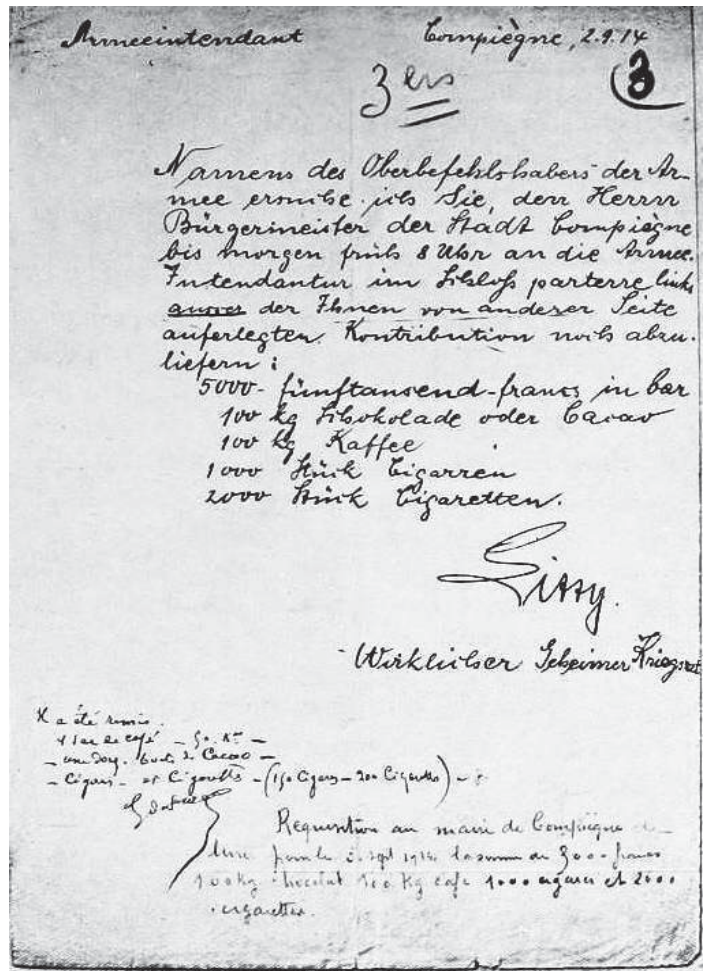 Armeeintendant Compiègne, 2.9.14
3 ers
3
Namens des Oberbefehlshabers der Ar-
mee ersuche ich Sie, den Herrn
Bürgermeister der Stadt Compiègne
bis morgen früh 8 Uhr an die Armee-
Intendantur im Schloss parterre links
ausser der Ihnen von anderer Seite
auferlegten Kontribution noch abzu-
liefern:
5000- fünftausend-francs in bar
100 kg Schokolade oder Cacao
100 kg Kaffee
1000 Stück Cigarren
2000 Stück Cigaretten.
Wirklicher Geheimer Kriegsrat
Il a été remis.
1 sac de café – 50 Ks –
– une douz. boites de Cacao –
– Cigares – et Cigarettes – (150 Cigares – 200 Cigarettes) –
Requisition au maire de Compiègne de
livrer pour le sept 1914 la somme de francs
100 kg chocolat 100 Kg café 1000 cigares et 2000
cigarettes.